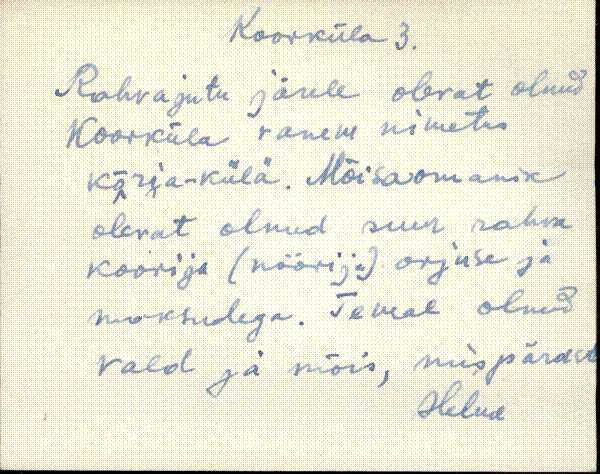 Koorküla 3.
Rahvajutu järele olevat olnud
Koorküla vanem nimetus
kärja-külä. Mõisaomanik
olevat olnud suur rahva
koorija (nöörija) orjuse ja
maksudega. Temal olnud
vald ja mõis, mispärast
Helme